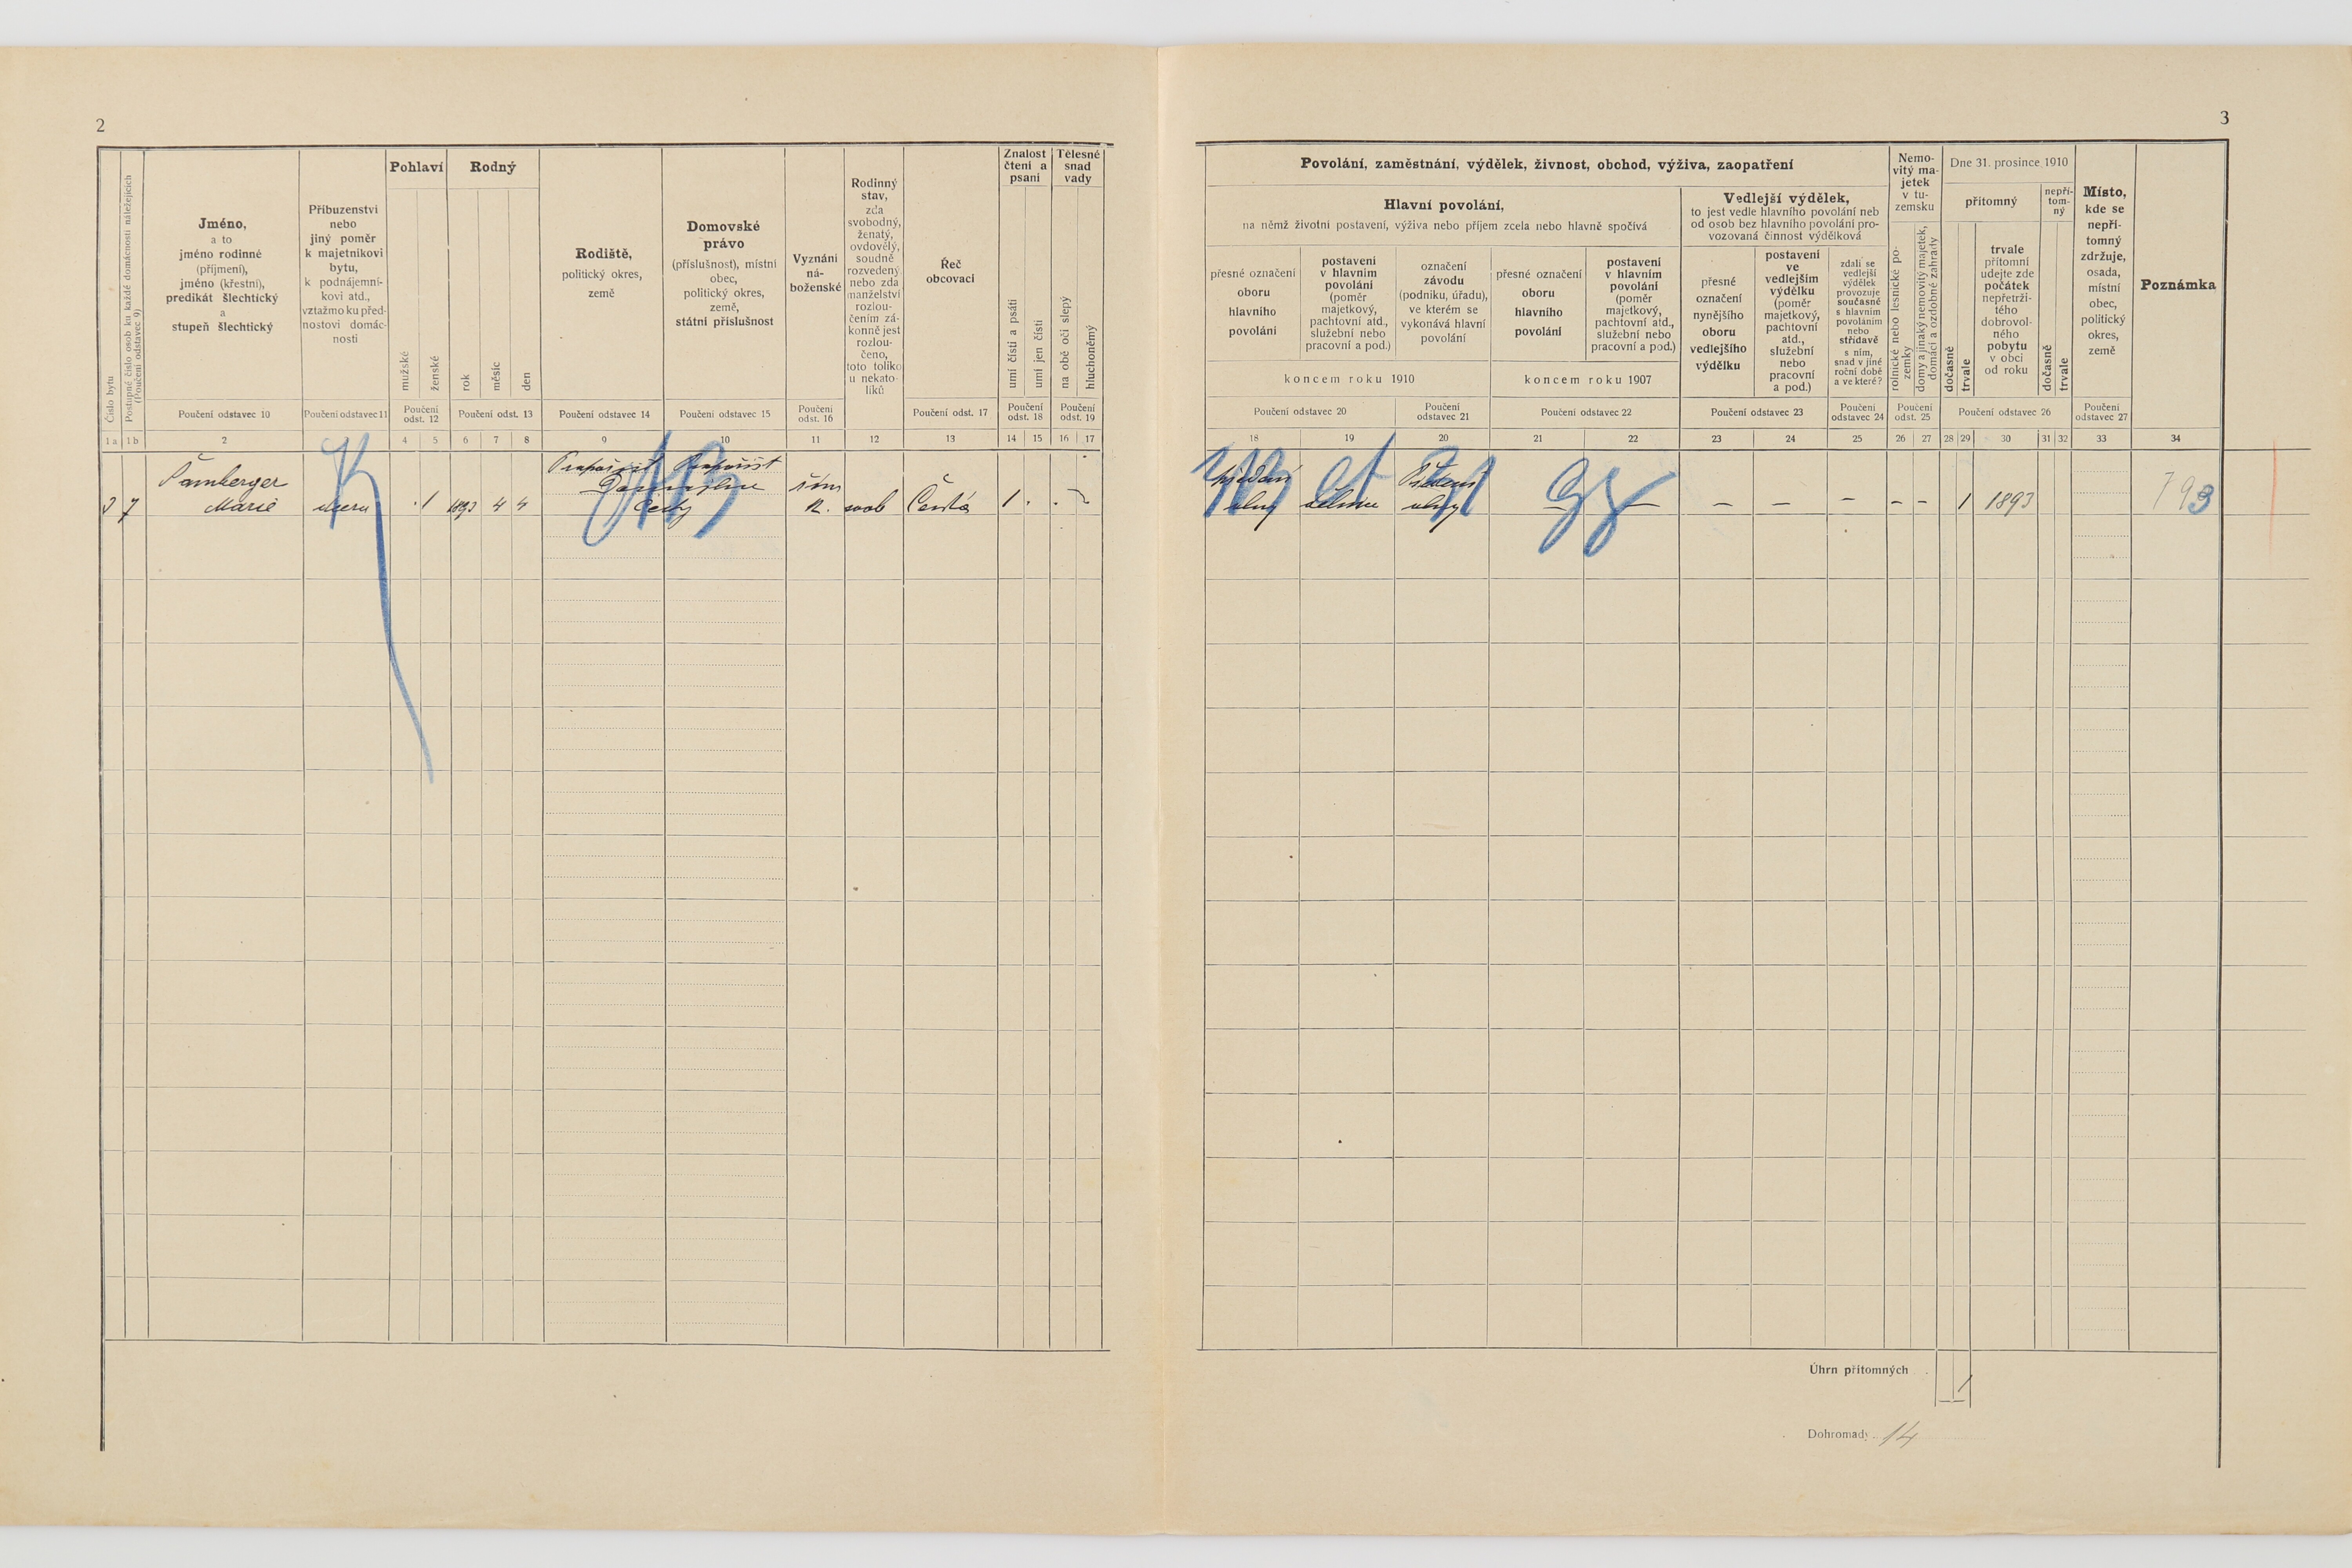 2
Číslo bytu
Postupné číslo osob ku každé domácnosti náležejících
(Poučení odstavec 9)
Jméno,
a to
jméno rodinné
(příjmení),
jméno (křestní),
predikát šlechtický
a
stupeň šlechtický
Příbuzenství
nebo
jiný poměr
k majetníkovi
bytu,
k podnájemní-
kovi atd.,
vztažmo ku před-
nostovi domác-
nosti
Pohlaví
mužské
ženské
Rodný
rok
měsíc
den
Rodiště,
politický okres,
země
Domovské
právo
(příslušnost), místní
obec,
politický okres,
země,
státní příslušnost
Vyznání
ná-
boženské
Rodinný
stav,
zda
svobodný,
ženatý,
ovdovělý,
soudně
rozvedený
nebo zda
manželství
rozlou-
čením zá-
konně jest
rozlou-
čeno,
toto toliko
u nekato-
líků
Řeč
obcovací
Znalost
čtení a
psaní
umí čísti a psáti
umí jen čísti
Tělesné
snad
vady
na obě oči slepý
hluchoněmý
Poučení odstavec 10
Poučení odstavec 11
Poučení
odst. 12
Poučení odst. 13
Poučení odstavec 14
Poučení odstavec 15
Poučení
odst. 16
Poučení odst. 17
Poučení
odst. 18
Poučení
odst. 19
1 a 1 b 2 3 4 5 6 7 8 9 10 11 12 13 14 15 16 17
Šamberger
3 7 Marie dcera . 1 1893 4 4
Čechy
řím.
k. svob Česká 1 . .
3
Povolání, zaměstnání, výdělek, živnost, obchod, výživa, zaopatření
Hlavní povolání,
na němž životní postavení, výživa nebo příjem zcela nebo hlavně spočívá
přesné označení
oboru
hlavního
povolání
postavení
v hlavním
povolání
(poměr
majetkový,
pachtovní atd.,
služební nebo
pracovní a pod.)
označení
závodu
(podniku, úřadu),
ve kterém se
vykonává hlavní
povolání
přesné označení
oboru
hlavního
povolání
postavení
v hlavním
povolání
(poměr
majetkový,
pachtovní atd.,
služební nebo
pracovní a pod.)
koncem roku 1910
koncem roku 1907
Vedlejší výdělek,
to jest vedle hlavního povolání neb
od osob bez hlavního povolání pro-
vozovaná činnost výdělková
přesné
označení
nynějšího
oboru
vedlejšího
výdělku
postavení
ve
vedlejším
výdělku
(poměr
majetkový,
pachtovní
atd.,
služební
nebo
pracovní
a pod.)
zdali se
vedlejší
výdělek
provozuje
současně
s hlavním
povoláním
nebo
střídavě
s ním,
snad v jiné
roční době
a ve které?
Nemo-
vitý ma-
jetek
v tu-
zemsku
rolnické nebo lesnické po-
zemky
domy a jinaký nemovitý majetek,
domácí a ozdobné zahrady
Dne 31. prosince 1910
přítomný
nepří-
tom-
ný
dočasně
trvale
trvale
přítomní
udejte zde
počátek
nepřetrži-
tého
dobrovol-
ného
pobytu
v obci
od roku
dočasně
trvale
Místo,
kde se
nepří-
tomný
zdržuje,
osada,
místní
obec,
politický
okres,
země
Poznámka
Poučení odstavec 20
Poučení
odstavec 21
Poučení odstavec 22
Poučení odstavec 23
Poučení
odstavec 24
Poučení
odst. 25
Poučení odstavec 26
Poučení
odstavec 27
18 19 20 21 22 23 24 25 26 27 28 29 30 31 32 33 34
předení
vlny dělnice vlny — — — — — — — 1 1893 793
Úhrn přítomných 1
Dohromady 14